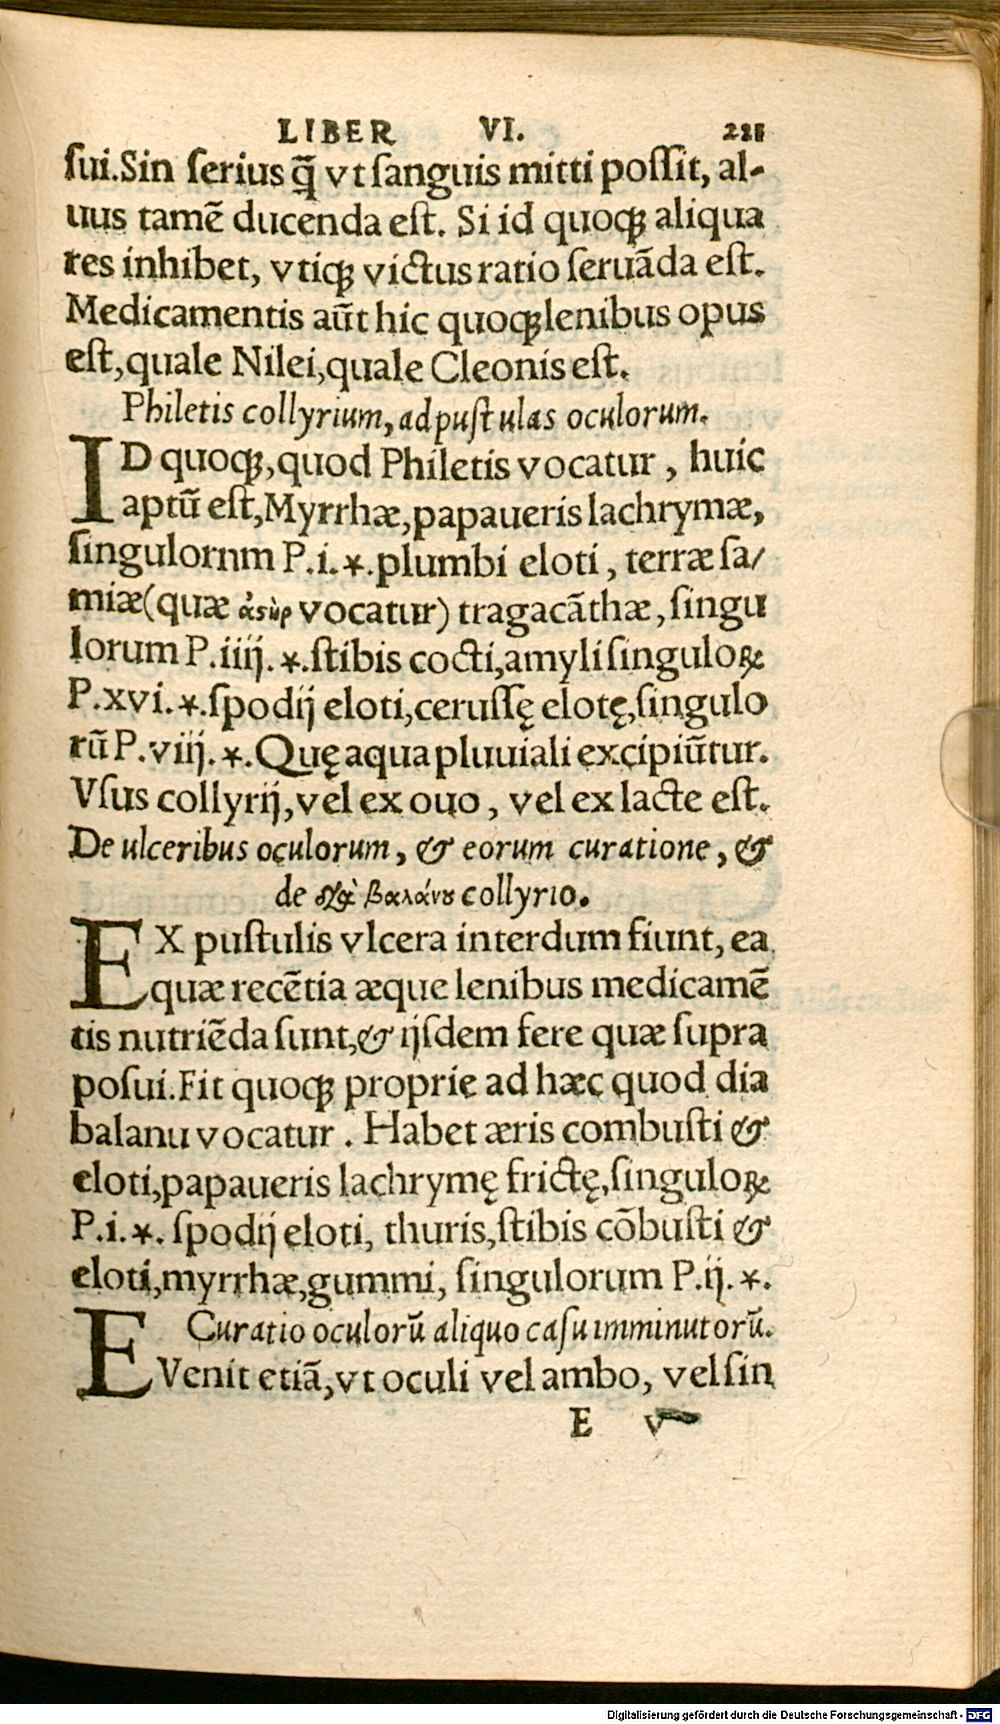 LIBER VI. 221
sui.Sin serius q̃ vt sanguis mitti possit, al-
uus tamē ducenda est. Si id quoqꝫ aliqua
res inhibet, vtiqꝫ victus ratio seruāda est.
Medicamentis aūt hic quoqꝫ lenibus opus
est, quale Nilei, quale Cleonis est.
Philetis collyrium, ad pustulas oculorum.
ID quoqꝫ, quod Philetis vocatur, huic
aptū est, Myrrhæ, papaueris lachrymæ,
singulornm P.i.*.plumbi eloti, terræ sa/
miæ (quæ ἀσὴρ vocatur) tragacāthæ, singu
lorum P.iiij.*.stibis cocti, amyli singuloꝝ
P.xvi.*.spodij eloti, cerussę elotę, singulo
rū P.viij.*.Quę aqua pluuiali excipiūtur.
Vsus collyrij, vel ex ouo, vel ex lacte est.
De ulceribus oculorum, & eorum curatione, &
de βαλάνου collyrio.
EX pustulis vlcera interdum fiunt, ea
quæ recētia æque lenibus medicamē
tis nutriēda sunt, & ijsdem fere quæ supra
posui.Fit quoqꝫ proprie ad hæc quod dia
balanu vocatur. Habet æris combusti &
eloti, papaueris lachrymę frictę, singuloꝝ
P.i.*. spodij eloti, thuris, stibis cōbusti &
eloti, myrrhæ, gummi, singulorum P.ij.*.
Curatio oculorū aliquo casu imminutorū.
EVenit etiā, vt oculi vel ambo, vel sin
E v
Digitalisierung gefördert durch die Deutsche Forschungsgemeinschaft - DFG